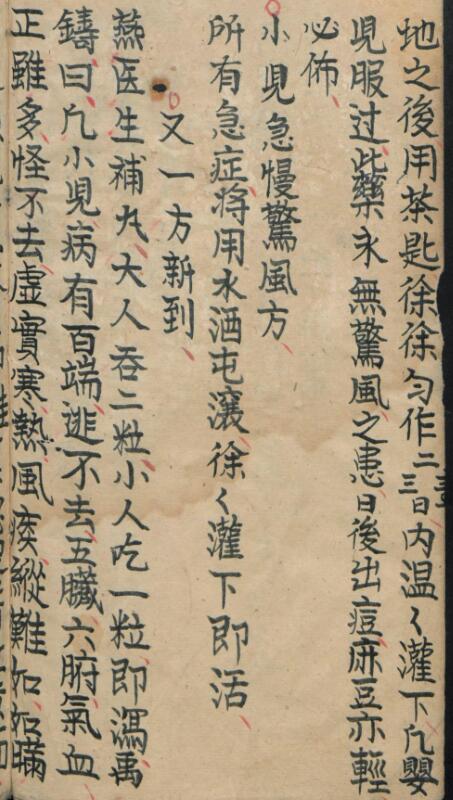 地之後用茶匙徐徐勻作二三日内温〻灌下凢嬰
児服过此藥永無驚風之患日後出痘麻豆亦輕
必佈
小児急慢驚風方
所有急症将用水洒屯滾徐〻灌下即活
又一方新到
燕医生補丸大人吞二粒小人吃一粒即瀉禹
鑄曰凢小児病有百端逃不去五臟六腑氣血
正雖多怪不去虛實寒熱風痰縱難如如瞞